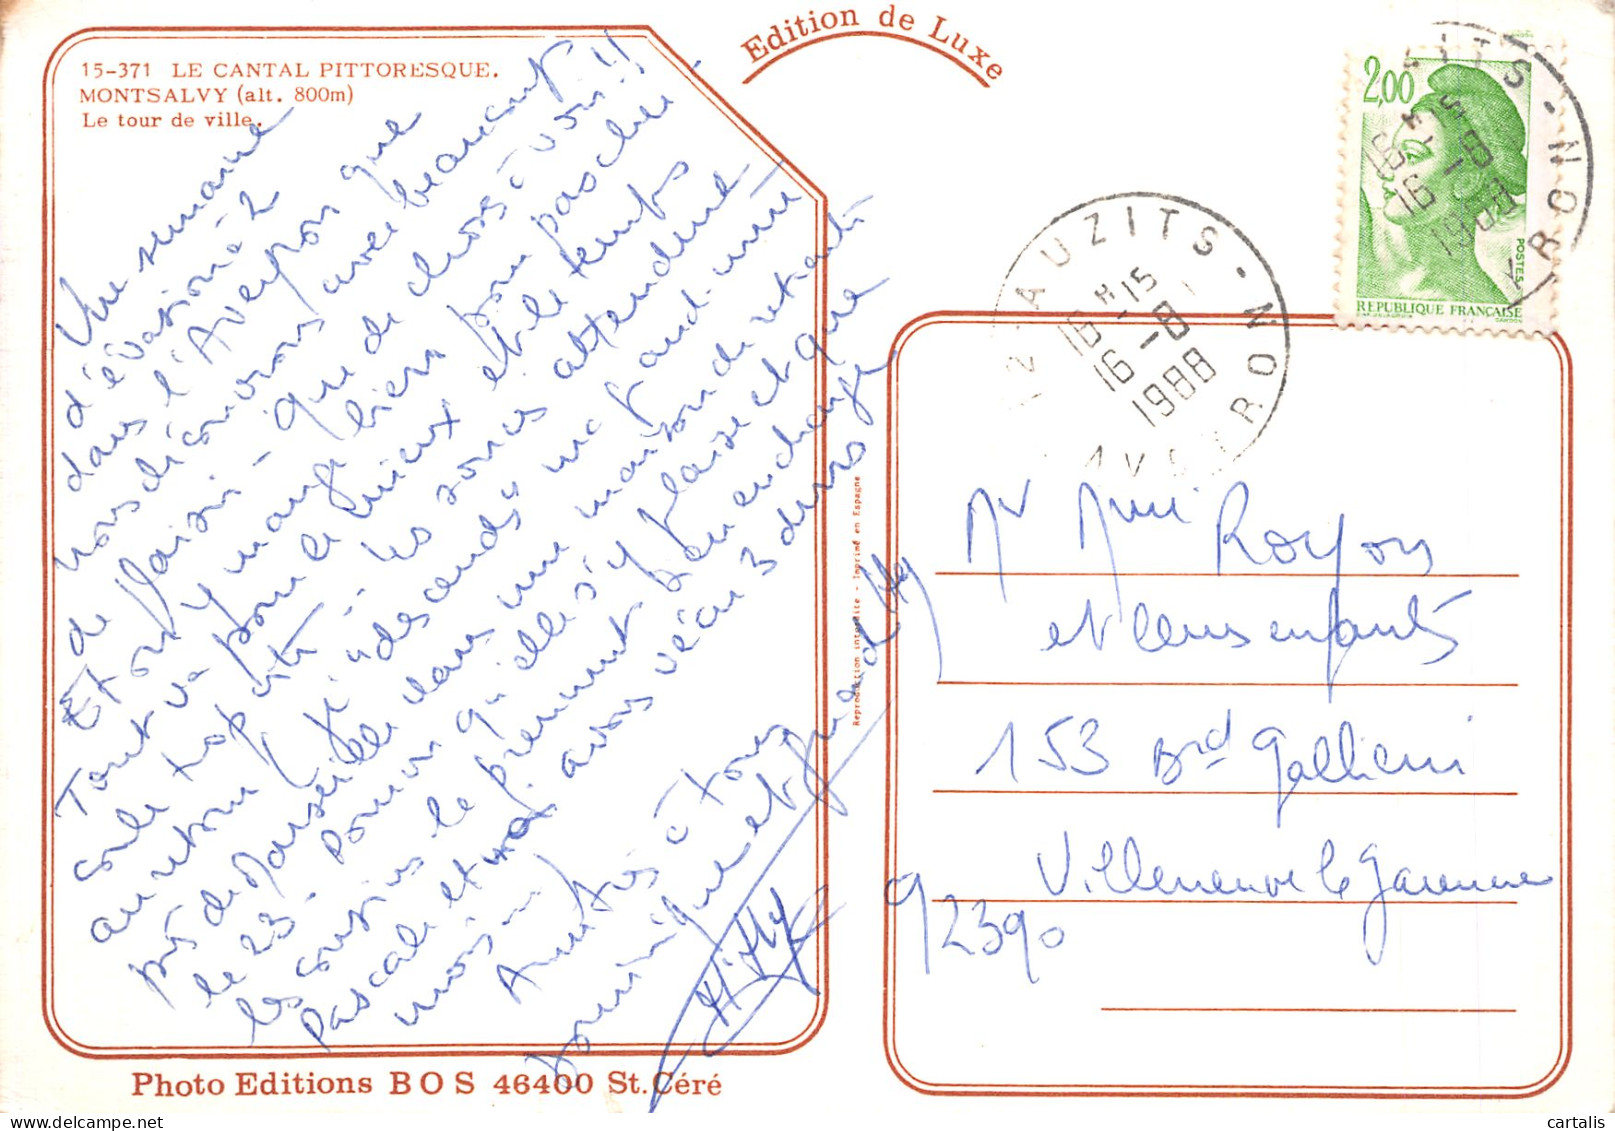 Edition de Luxe
15-371 LE CANTAL PITTORESQUE.
MONTSALVY (alt. 800m)
Le tour de ville.
Une semaine
d'évasion à 2
dans l'Aveyron que
nous découvrons avec beaucoup
de plaisir - que de choses à voir !!
Et on y mange bien pour pas cher !
Tout va pour le mieux et le temps
les sources attendent
au retour
près de Marseille dans une maison de retraite
le 23 - pourvu qu'elle s'y plaise et que
les cousins le prennent bien en charge
Pascale et moi avons vécu 3 durs
mois
Amitiés à tous
Dominique et
Reproduction interdite - Imprimé en Espagne
2,00
POSTES
REPUBLIQUE FRANÇAISE
AUZITS - AVEYRON
16 H 15
16 -8
1988
Mr Mme Royon
et leurs enfants
153 Brd Gallieni
Villeneuve la Garenne
92390
Photo Editions BOS 46400 St. Céré
cartalis